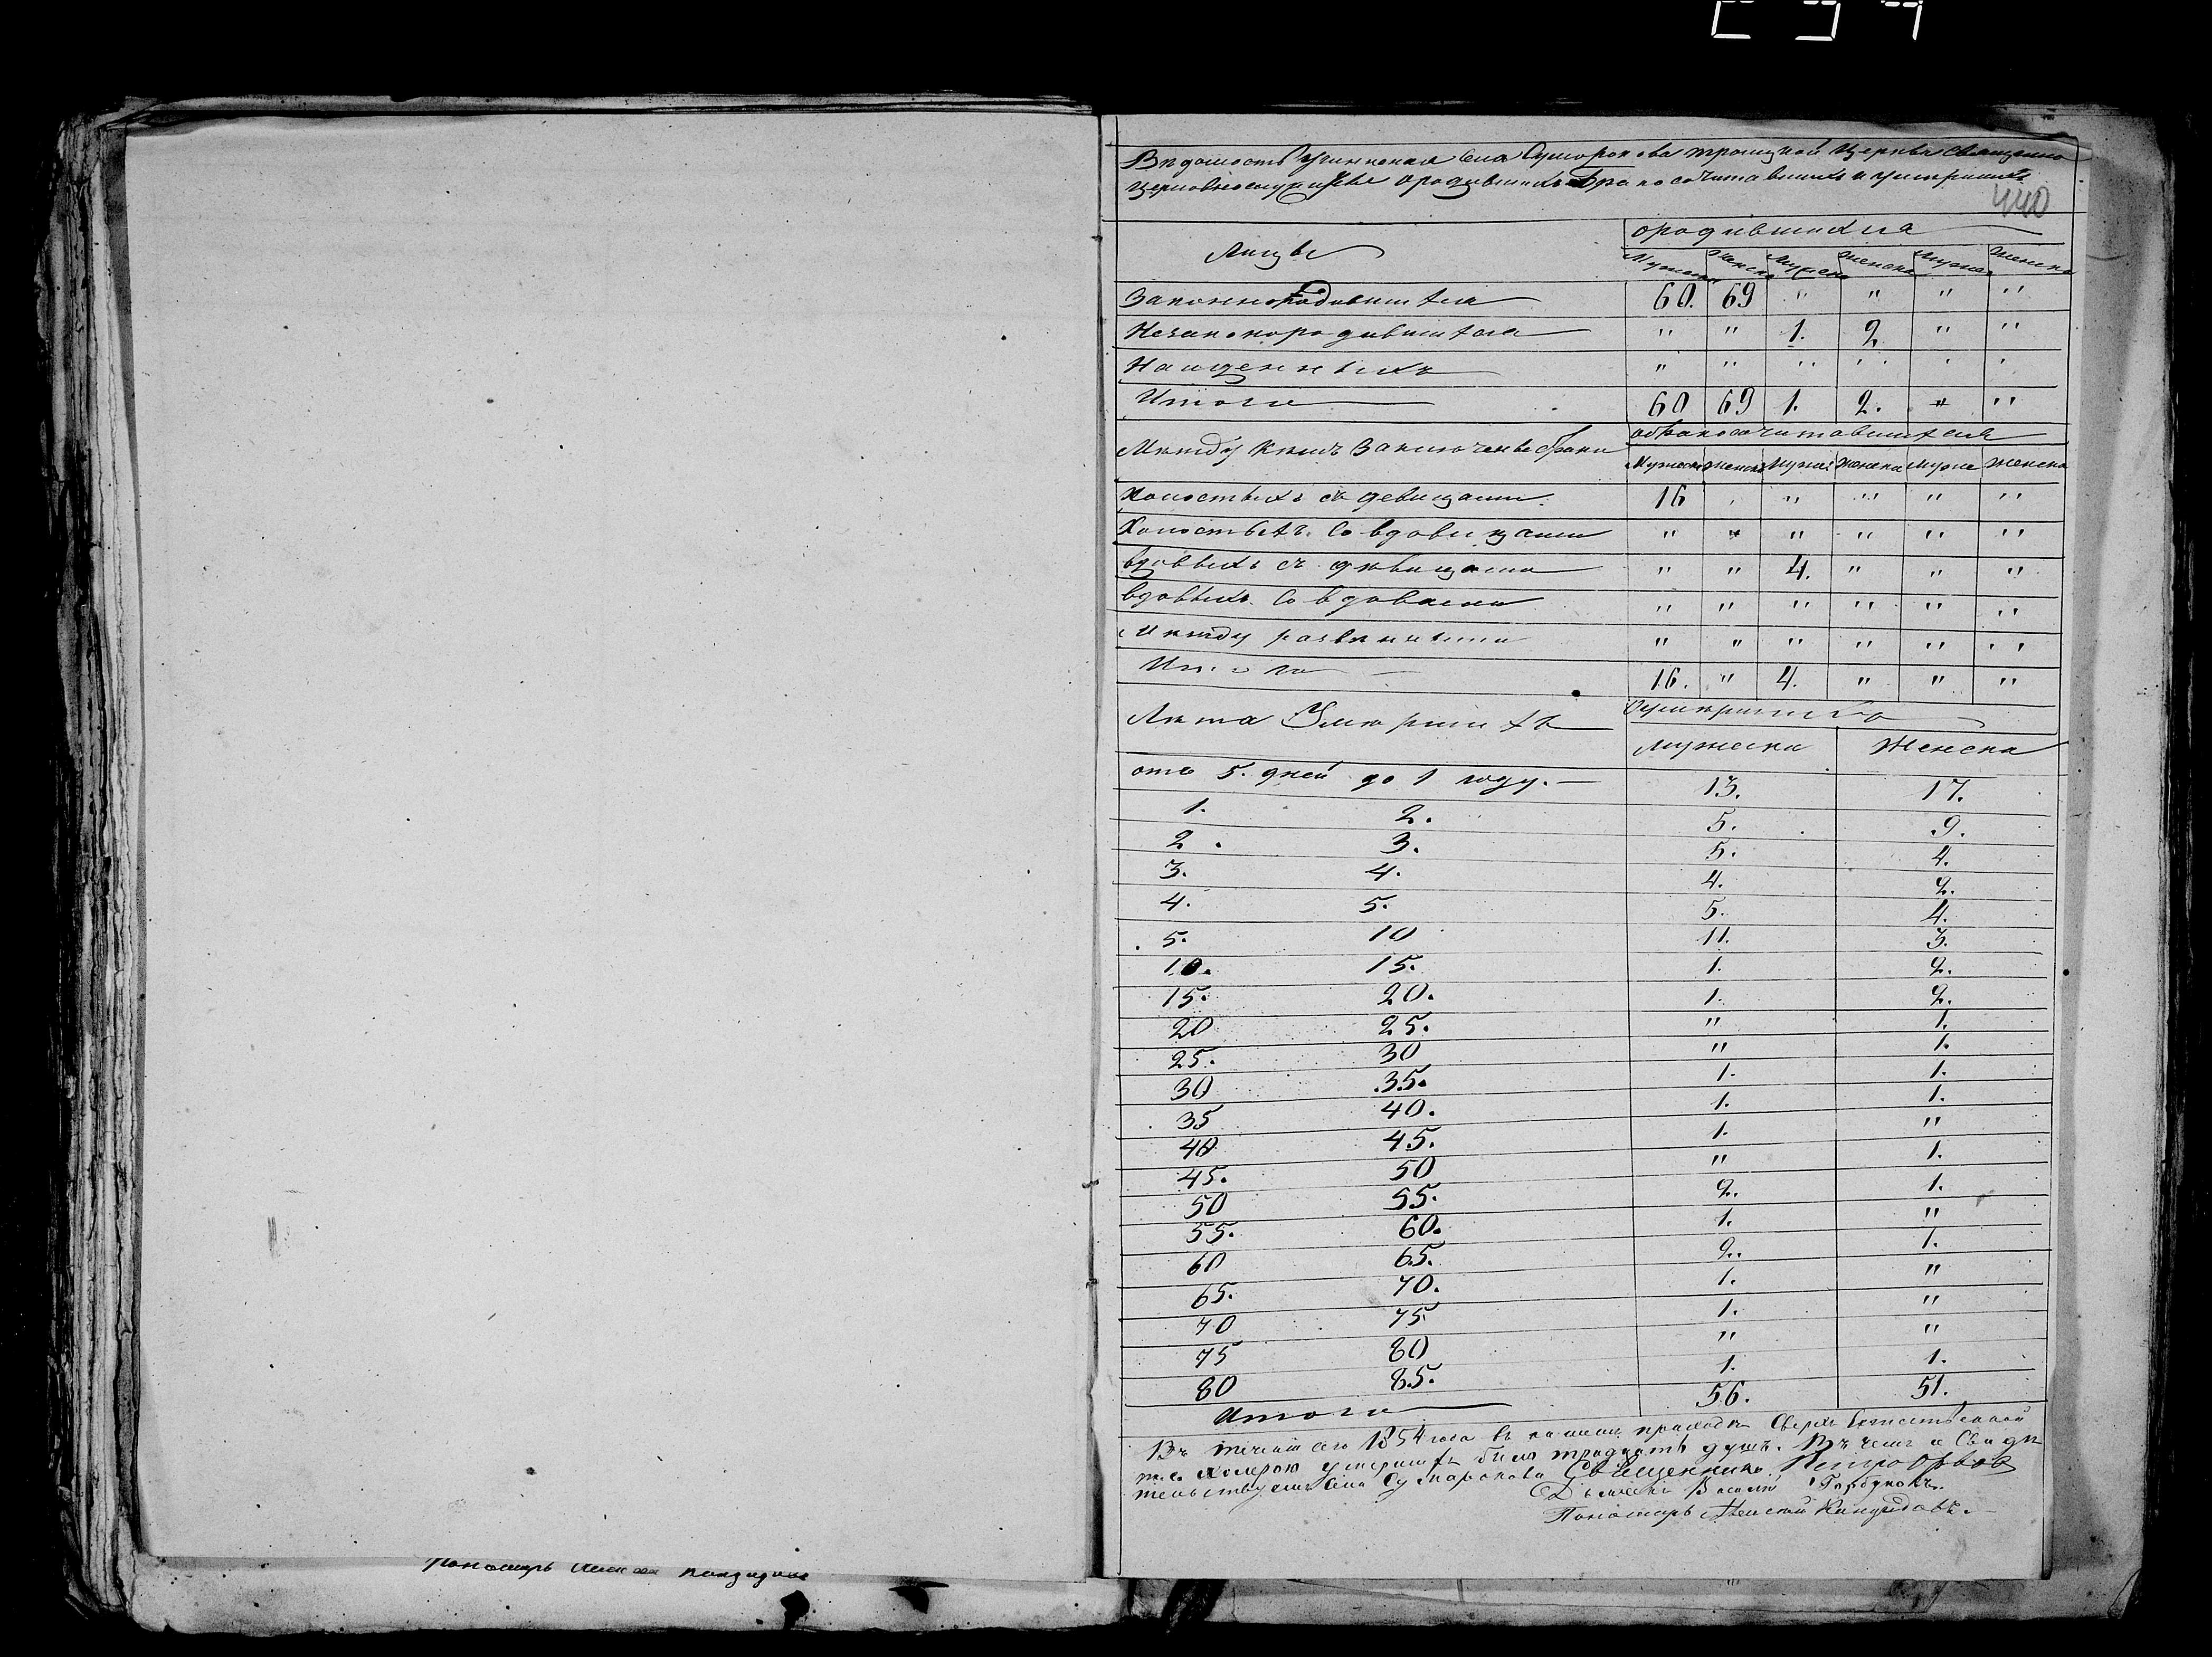 Ведомость учиненная села Сумарокова троицкой Церкви Священно
церковнослужителе ородившихся бракосочетавшихъ и умершихъ
440
Лицы ородившихся
Мужеска Женска Мужеска Женска Мужес Женска
Законнородившихся 60. 69 " " " "
Незаконородившихся " " 1. 2. " "
Найденныхъ " " " " " "
Итого 60 69 1. 2. " "
Между кемъ Заключены браки обракосочитавшихся
Мужеска Женска Мужес Женска Мужес Женска
Холостыхъ съ девицами. 16 " " " " "
Холостыхъ. Со вдовицами " " " " " "
вдовыхъ съ девицами " " 4. " " "
вдовыхъ. Со вдовами " " " " " "
Между " " " " " "
Итого 16. " 4. " " "
Лета Умершихъ Оумершихъ
мужеска Женска
отъ 5. дней до 1 году. 13. 17.
1. 2. 5. 9.
2. 3. 5. 4.
3. 4. 4. 2.
4. 5. 5. 4.
5. 10 11. 3.
10. 15. 1. 2.
15. 20. 1. 2.
20 25. " 1.
25. 30 " 1.
30 35. 1. 1.
35 40. 1. 1.
40 45. 1. "
45. 50 " 1.
50 55. 2. 1.
55. 60. 1. "
60 65. 2. 1.
65. 70. 1. "
70 75 1. "
75 80 " "
80 85. 1. 1.
Итого 56. 51.
Въ течении сего 1854 года въ нашемъ приходе Сверхъ Естественной
т.е. холерою умершихъ было тридцать душъ. Въ чемъ и Свиде
тельствуемъ Села Сумарокова Священникъ Петръ Орловъ
Дьячекъ Василий Горбуновъ.
Пономарь Алексей Кандидовъ.
Пономарь Алексей Кандидовъ